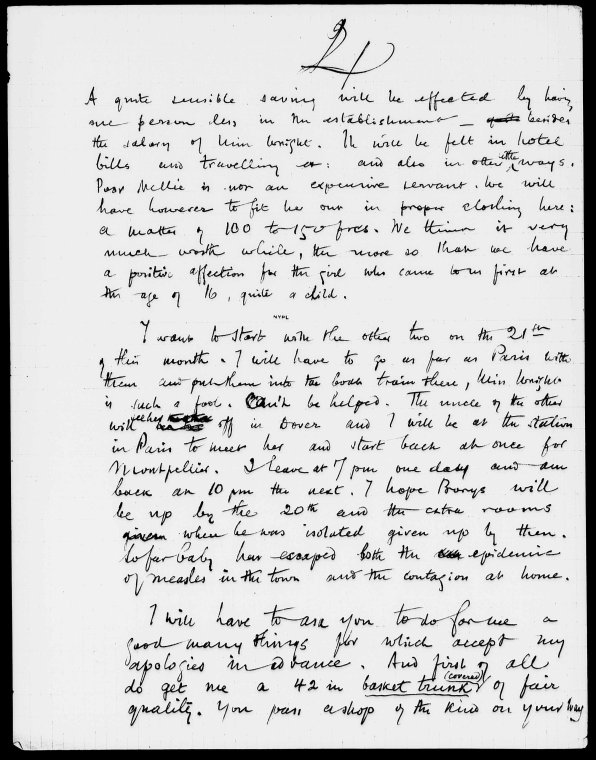 2
A quite sensible saving will be effected by having
one person less in the establishment — besides
the salary of Miss Wright. It will be felt in hotel
bills and travelling : and also in other ways.
Poor Nellie is not an expensive servant. We will
have however to fit her out in proper clothing here:
a matter of 100 to 150 frcs. We think it very
much worth while, the more so that we have
a positive affection for the girl who came to us first at
the age of 16, quite a child.
I want to start with the other two on the 21st
of this month. I will have to go as far as Paris with
them and put them into the boat train there, Miss Wright
is such a fool. Can't be helped. The uncle of the other
will fetch her off in Dover and I will be at the station
in Paris to meet her and start back at once for
Montpellier. I leave at 7 pm one day and am
back at 10 pm the next. I hope Borys will
be up by the 20th and the extra rooms
given when he was isolated given up by then.
So far baby has escaped both the epidemic
of measles in the town and the contagion at home.
I will have to ask you to do for me a
good many things for which accept my
apologies in advance. And first of all
do get me a 42 in basket trunk (covered) of fair
quality. You pass a shop of the kind on your way